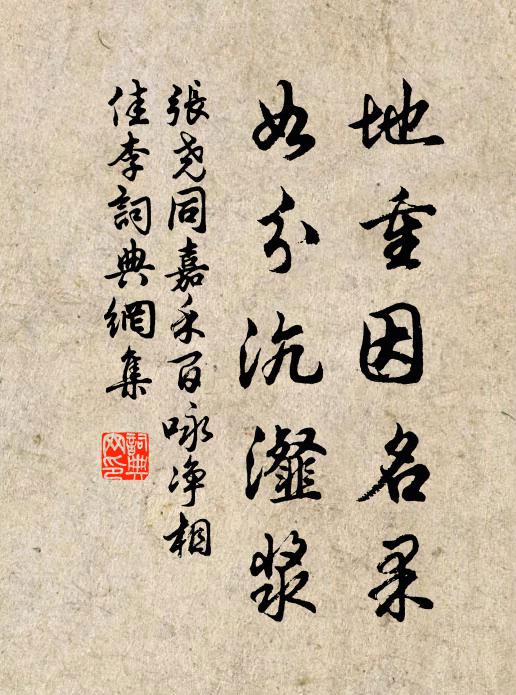 地重因名果
如分沆瀣漿
張堯同嘉禾百咏净相
佳李詞典網集
詞典网印